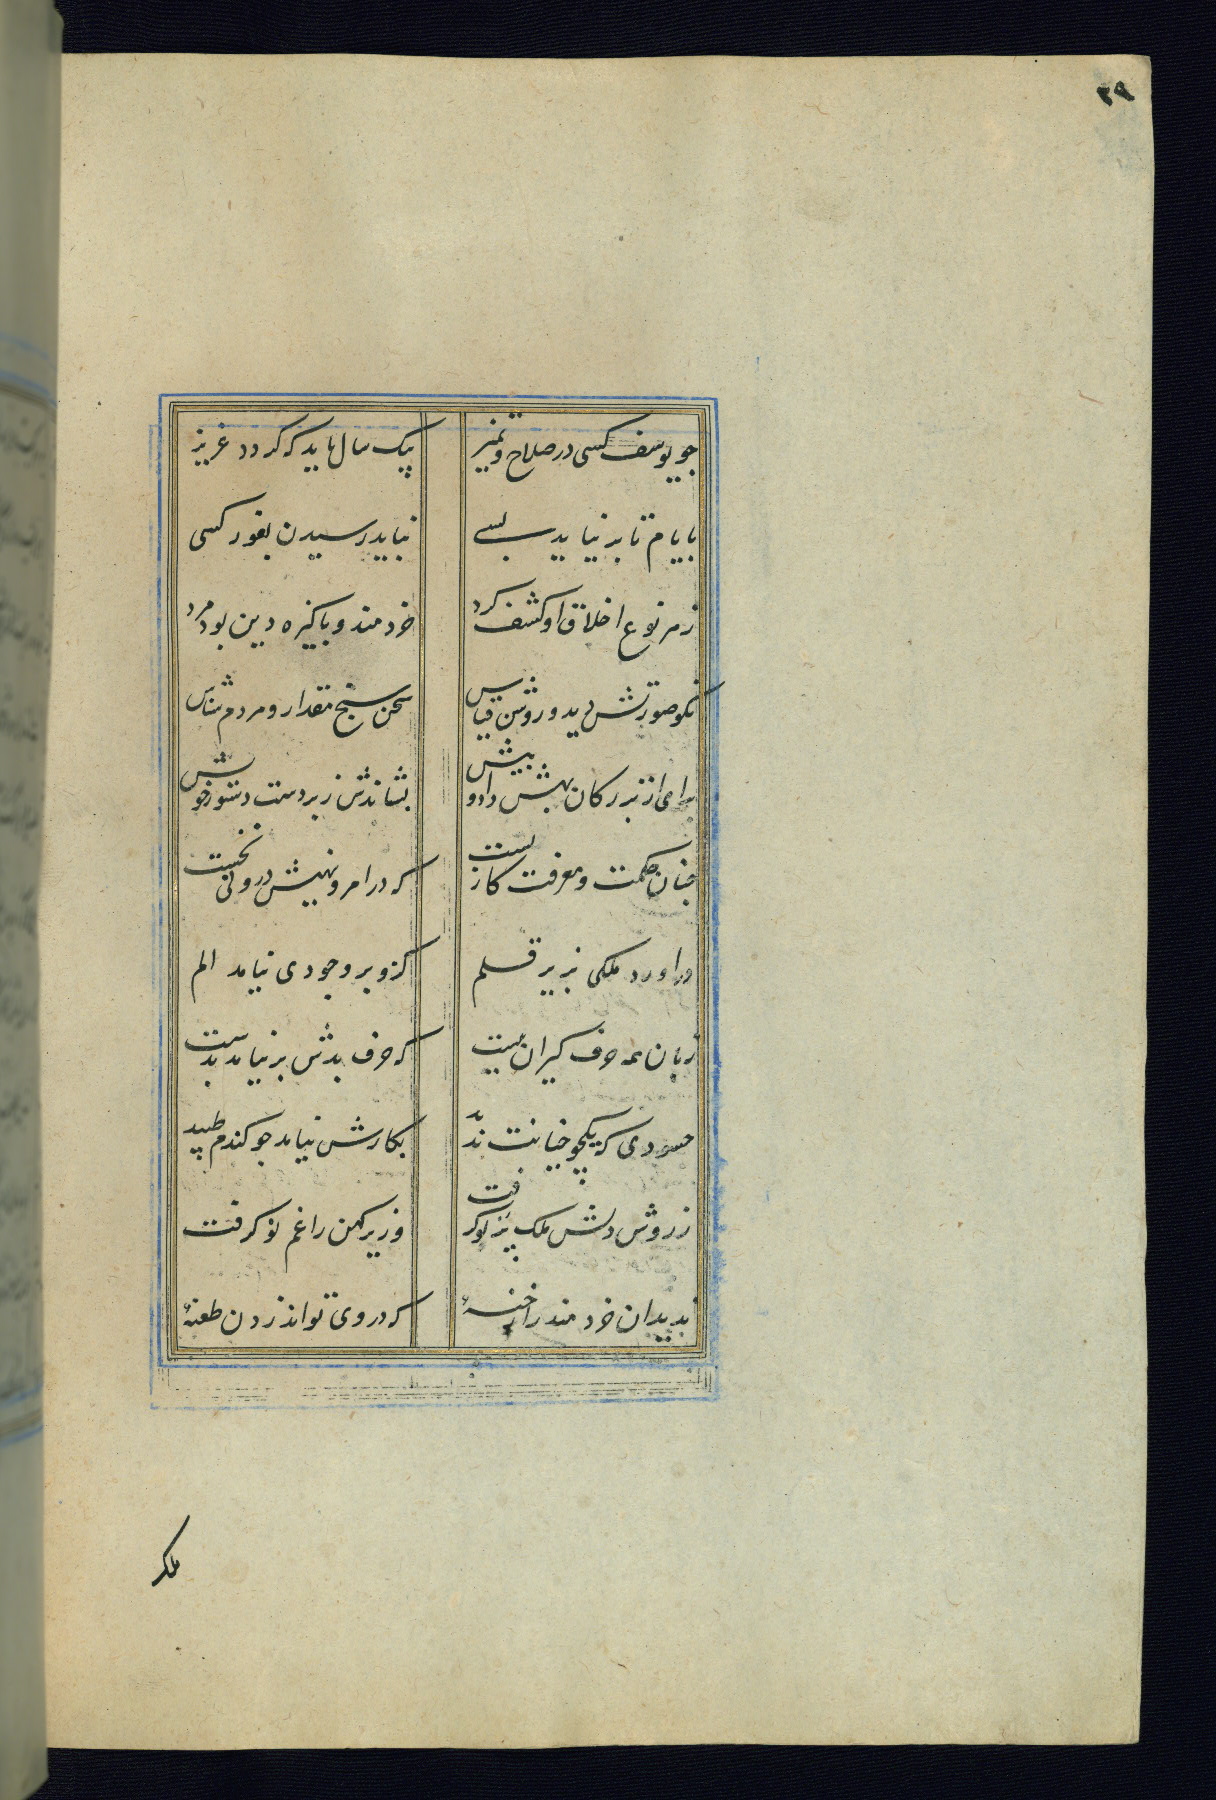 ۲۹
چو یوسف کسی در صلاح و تمیز بیک سال باید که گردد عزیز
بایام تا بر نیاید بسے نباید رسیدن بغور کسی
ز هر نوع اخلاق او کشف کرد خردمند و پاکیزه دین بود مرد
نکو صورتش دید و روشن قیاس سخن سنج مقدار و مردم شناس
برای از بزرگان بهش دید و بیش نشاندش زبردست دستور خویش
چنان حکمت و معرفت کار بست که در امر و نهیش درونی نخست
دراورد ملکی بزیر قلم کزو بر وجودی نیامد الم
زبان همه حرف گیران ببست که حرف بدش بر نیامد بدست
حسودی که یکجو خیانت ندید بکارش نیامد چو گندم طپید
ز روشن دلش ملک پرتو گرفت وزیر کهن را غم نو گرفت
ندید ان خردمند را رخنهٔ که در وی تواند زدن طعنهٔ
ملک